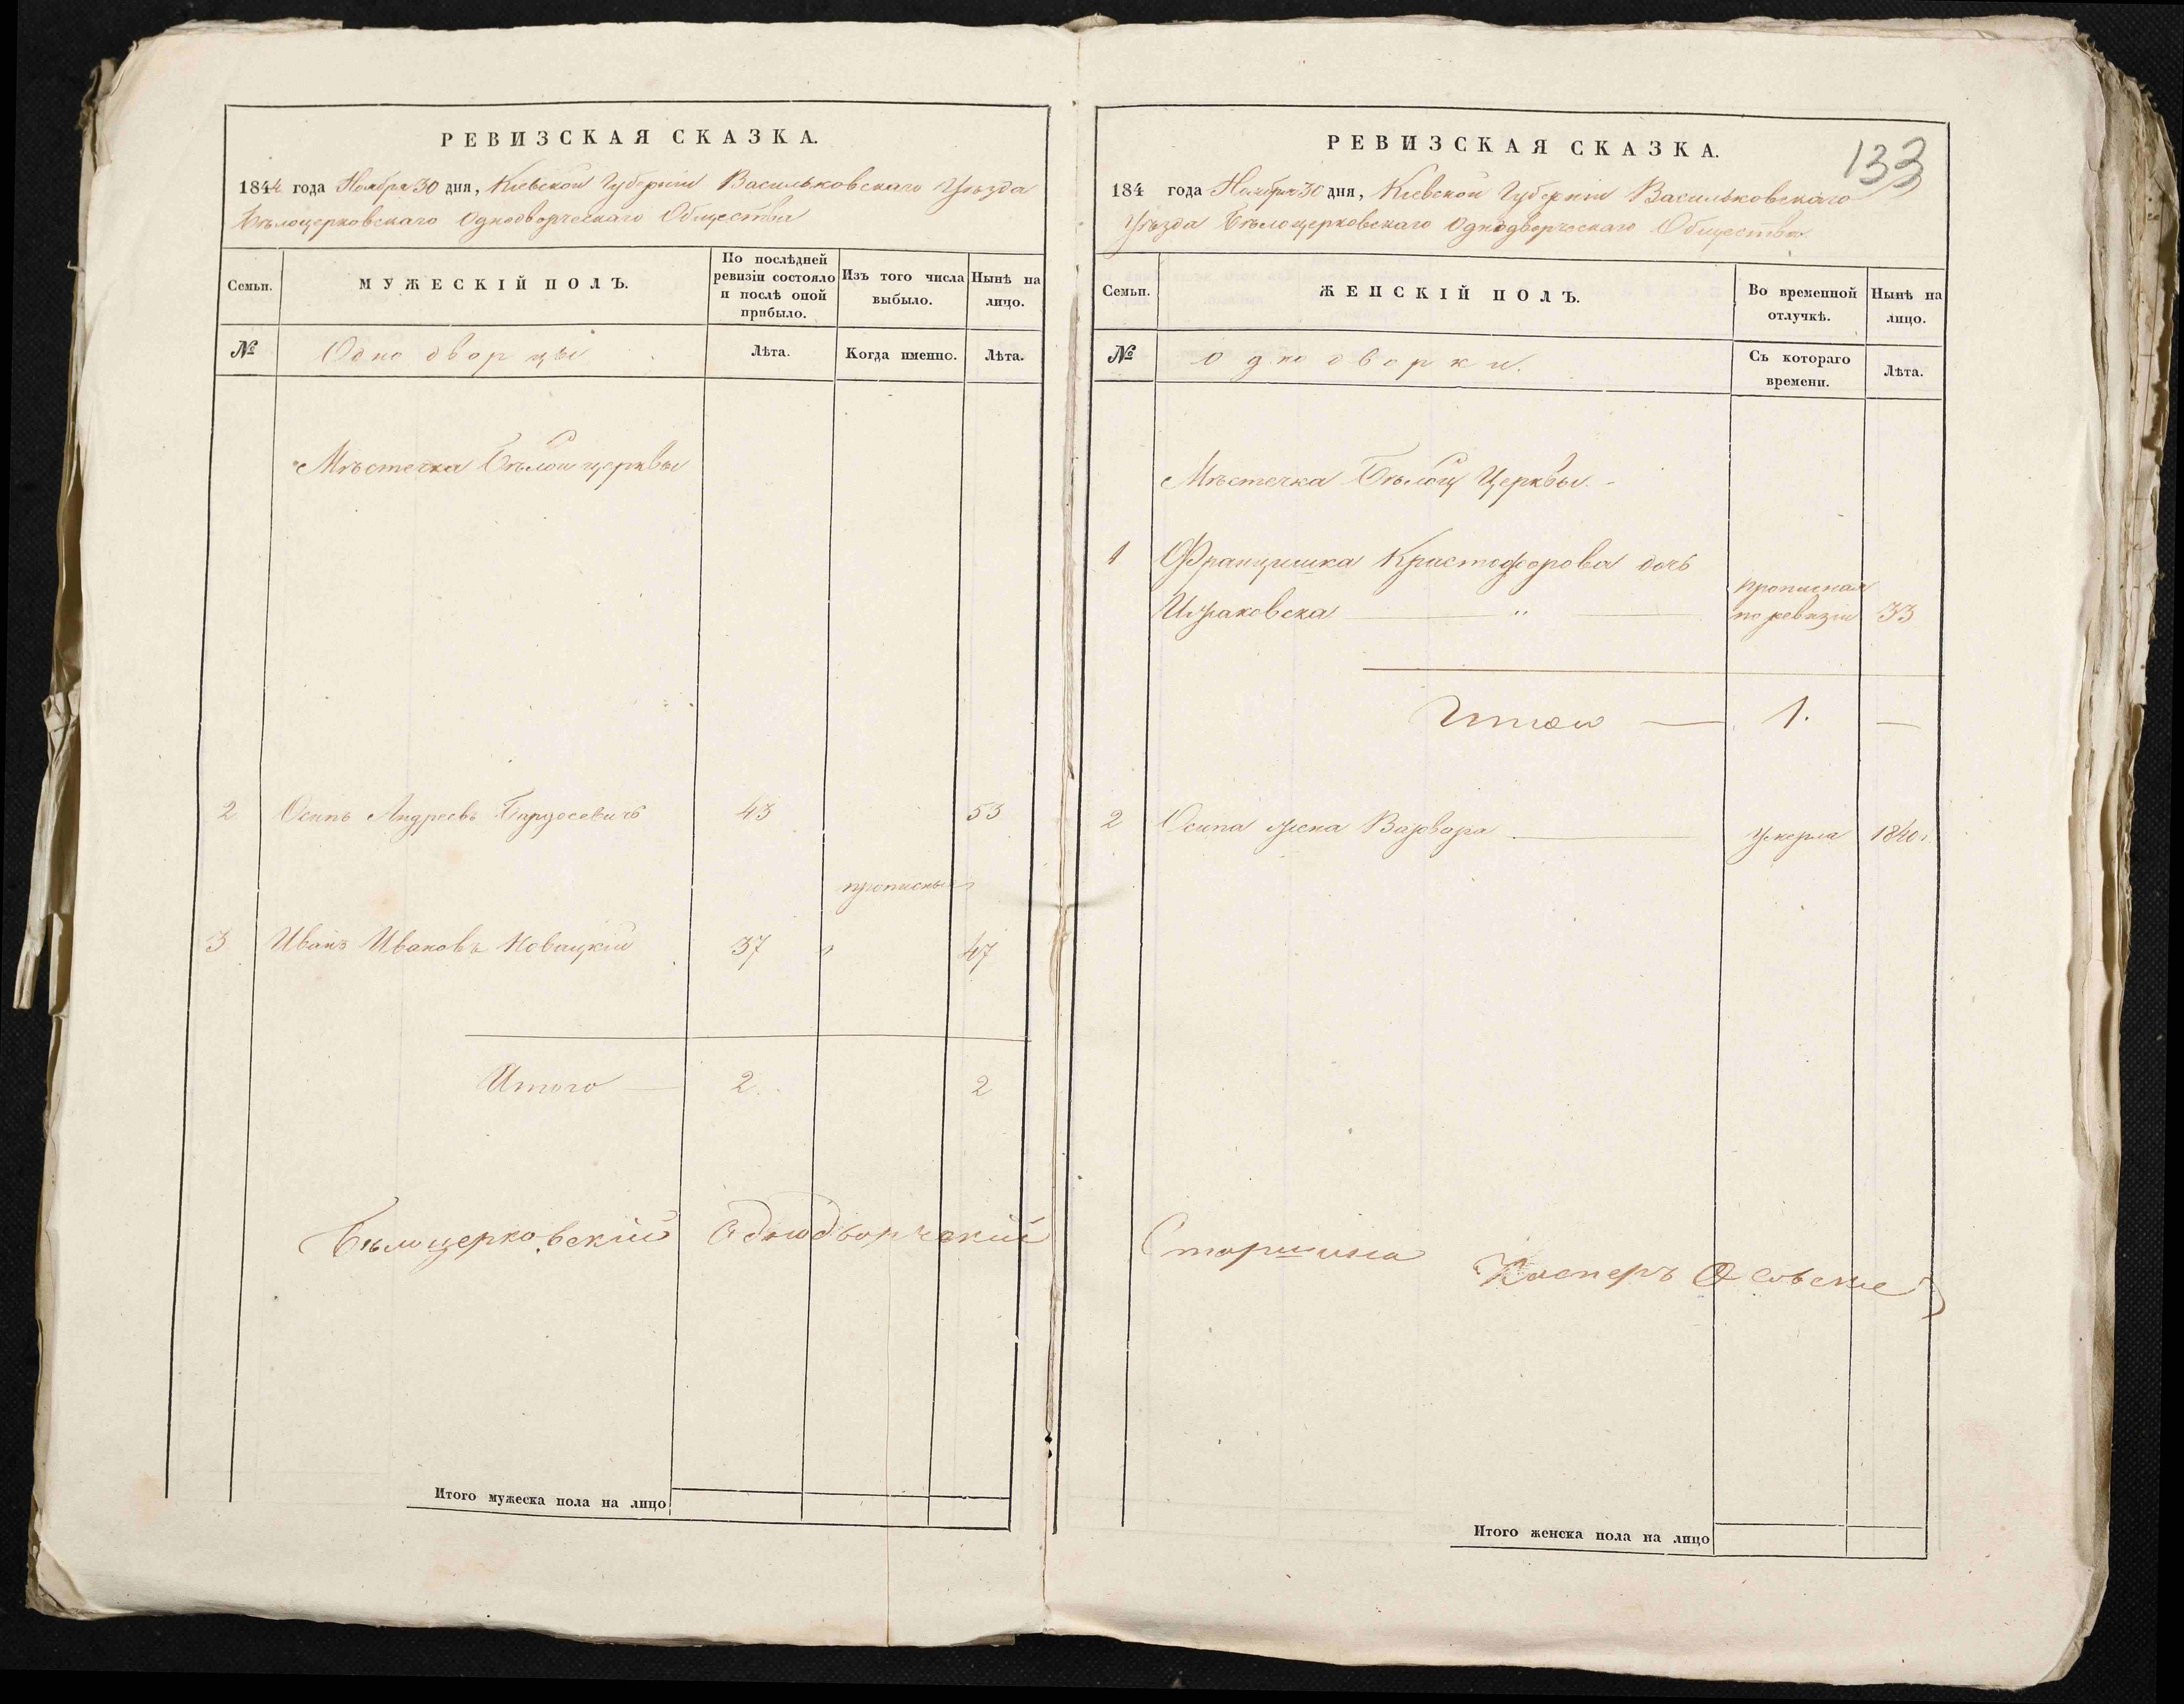 РЕВИЗСКАЯ СКАЗКА.
1844 года Ноября 30 дня, Кіевской Губерніи Васильковскаго Уѣзда
Бѣлоцерковскаго Однодворческаго Общества
Семьи.
МУЖЕСКІЙ ПОЛЪ.
По послѣдней
ревизіи состояло
и послѣ оной
прибыло.
Изъ того числа
выбыло.
Нынѣ на
лицо.
№
Однодворцы
Лѣта.
Когда именно.
Лѣта.
Мѣстечка Бѣлой церквы
2 Осипъ Андреевъ 43 53
прописны
3 Иванъ Ивановъ Новицкій 37 47
Итого 2. 2
Бѣлоцерковскій Однодворческій
Итого мужеска пола на лицо
РЕВИЗСКАЯ СКАЗКА.
133
184 года Ноября 30 дня, Кіевской Губерніи Васильковскаго
Уѣзда Бѣлоцерковскаго Однодворческаго Общества
Семьи.
ЖЕНСКІЙ ПОЛЪ.
Во временной
отлучкѣ.
Нынѣ на
лицо.
№
Однодворки.
Съ котораго
времени.
Лѣта.
Мѣстечка Бѣлой Церквы.
1 Францишка Кристофорова дочь
прописная
по ревизіи 33
Итого 1. —
2 Осипа жена Варвара умерла 1840 г.
Старшина Касперъ
Итого женска пола на лицо